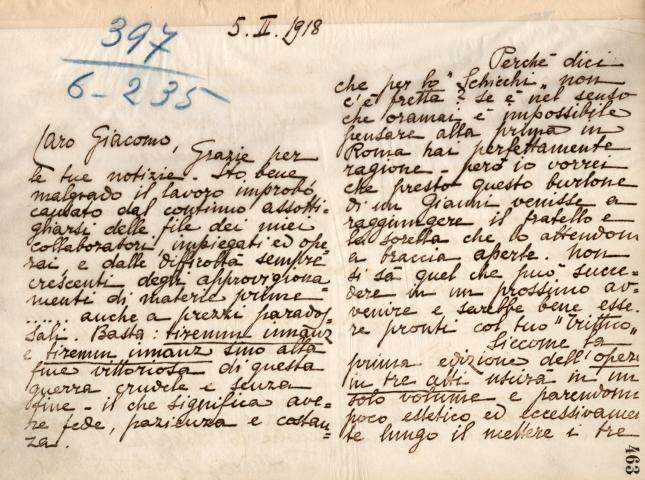 397
6-235
5. II. 1918
Caro Giacomo,
Grazie per
le tue notizie. Sto bene
malgrado il lavoro improbo
causato dal continuo assotti=
gliarsi delle file dei miei
collaboratori, impiegati ed ope=
rai, e dalle difficoltà sempre
crescenti degli approvigiona=
menti di materie prime -
...... anche a prezzi parados
sali. Basta: tiremm innanz
e tiremm innanz sino alla
fine vittoriosa di questa
guerra crudele e senza
fine - il che significa ave=
re fede, pazienza e costan=
za.
Perchè dici
che per lo "Schicchi" non
c'è fretta? se è nel senso
che oramai è impossibile
pensare alla prima in
Roma hai perfettamente
ragione - però io vorrei
che presto questo burlone
di un Gianni venisse a
raggiungere il fratello e
la sorella che lo attendono
a braccia aperte. Non
si sà quel che può succe=
dere in un prossimo av=
venire e sarebbe bene esse=
re pronti col tuo "Trittico"
Siccome la
prima edizione dell'opera
in tre atti uscirà in un
solo volume e parendomi
poco estetico ed eccessivamen
te lungo il mettere i tre
463